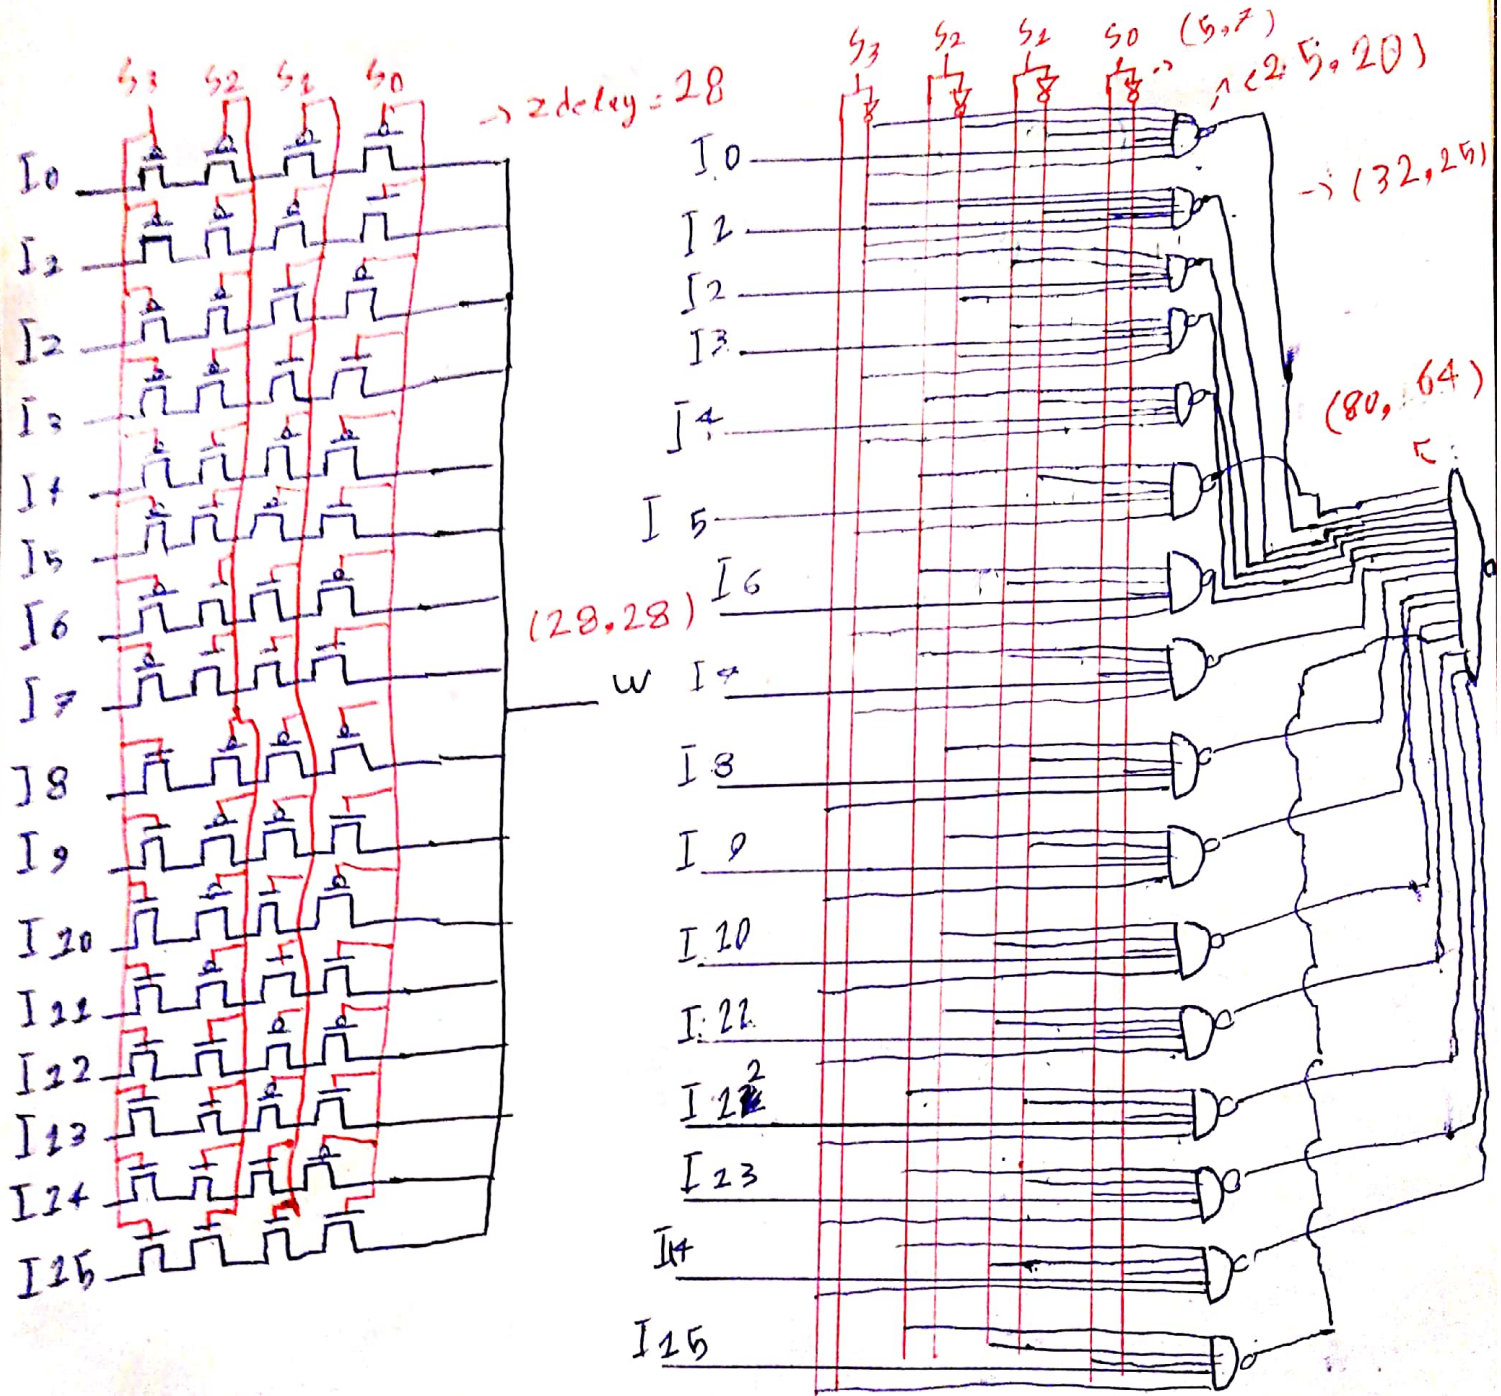 S3 S2 S1 S0 → 2 delay = 28
I0
I1
I2
I3
I4
I5
I6
I7
I8
I9
I10
I11
I12
I13
I14
I15
(28,28)
W
S3 S2 S1 S0 → (5,7)
(25,20)
→ (32,25)
(80, 64)
I0
I1
I2
I3
I4
I5
I6
I7
I8
I9
I10
I11
I12
I13
I14
I15